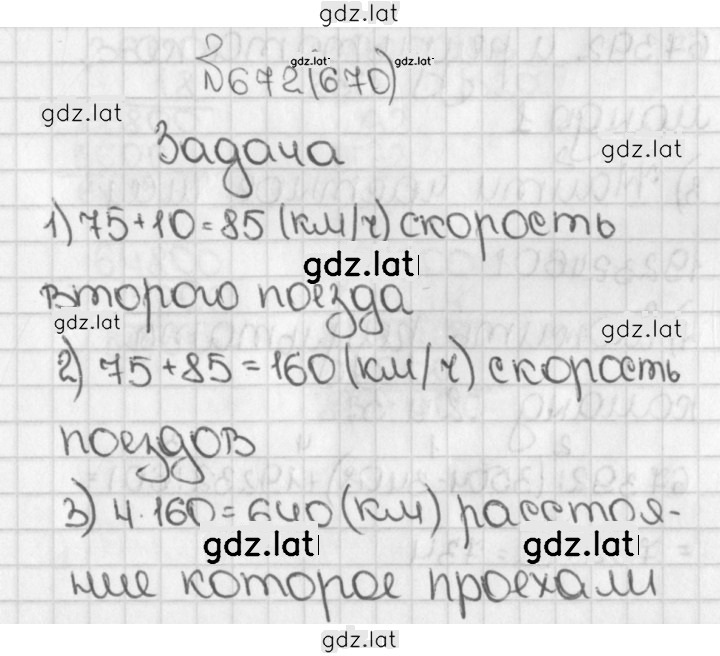 gdz.lat
№672(670)
gdz.lat gdz.lat
gdz.lat
Задача
gdz.lat
1) 75+10=85 (км/ч) скорость
gdz.lat
второго поезда
gdz.lat
gdz.lat
2) 75+85=160 (км/ч) скорость
поездов
3) 4·160=640 (км) расстоя-
gdz.lat gdz.lat
ние которое проехали
gdz.lat